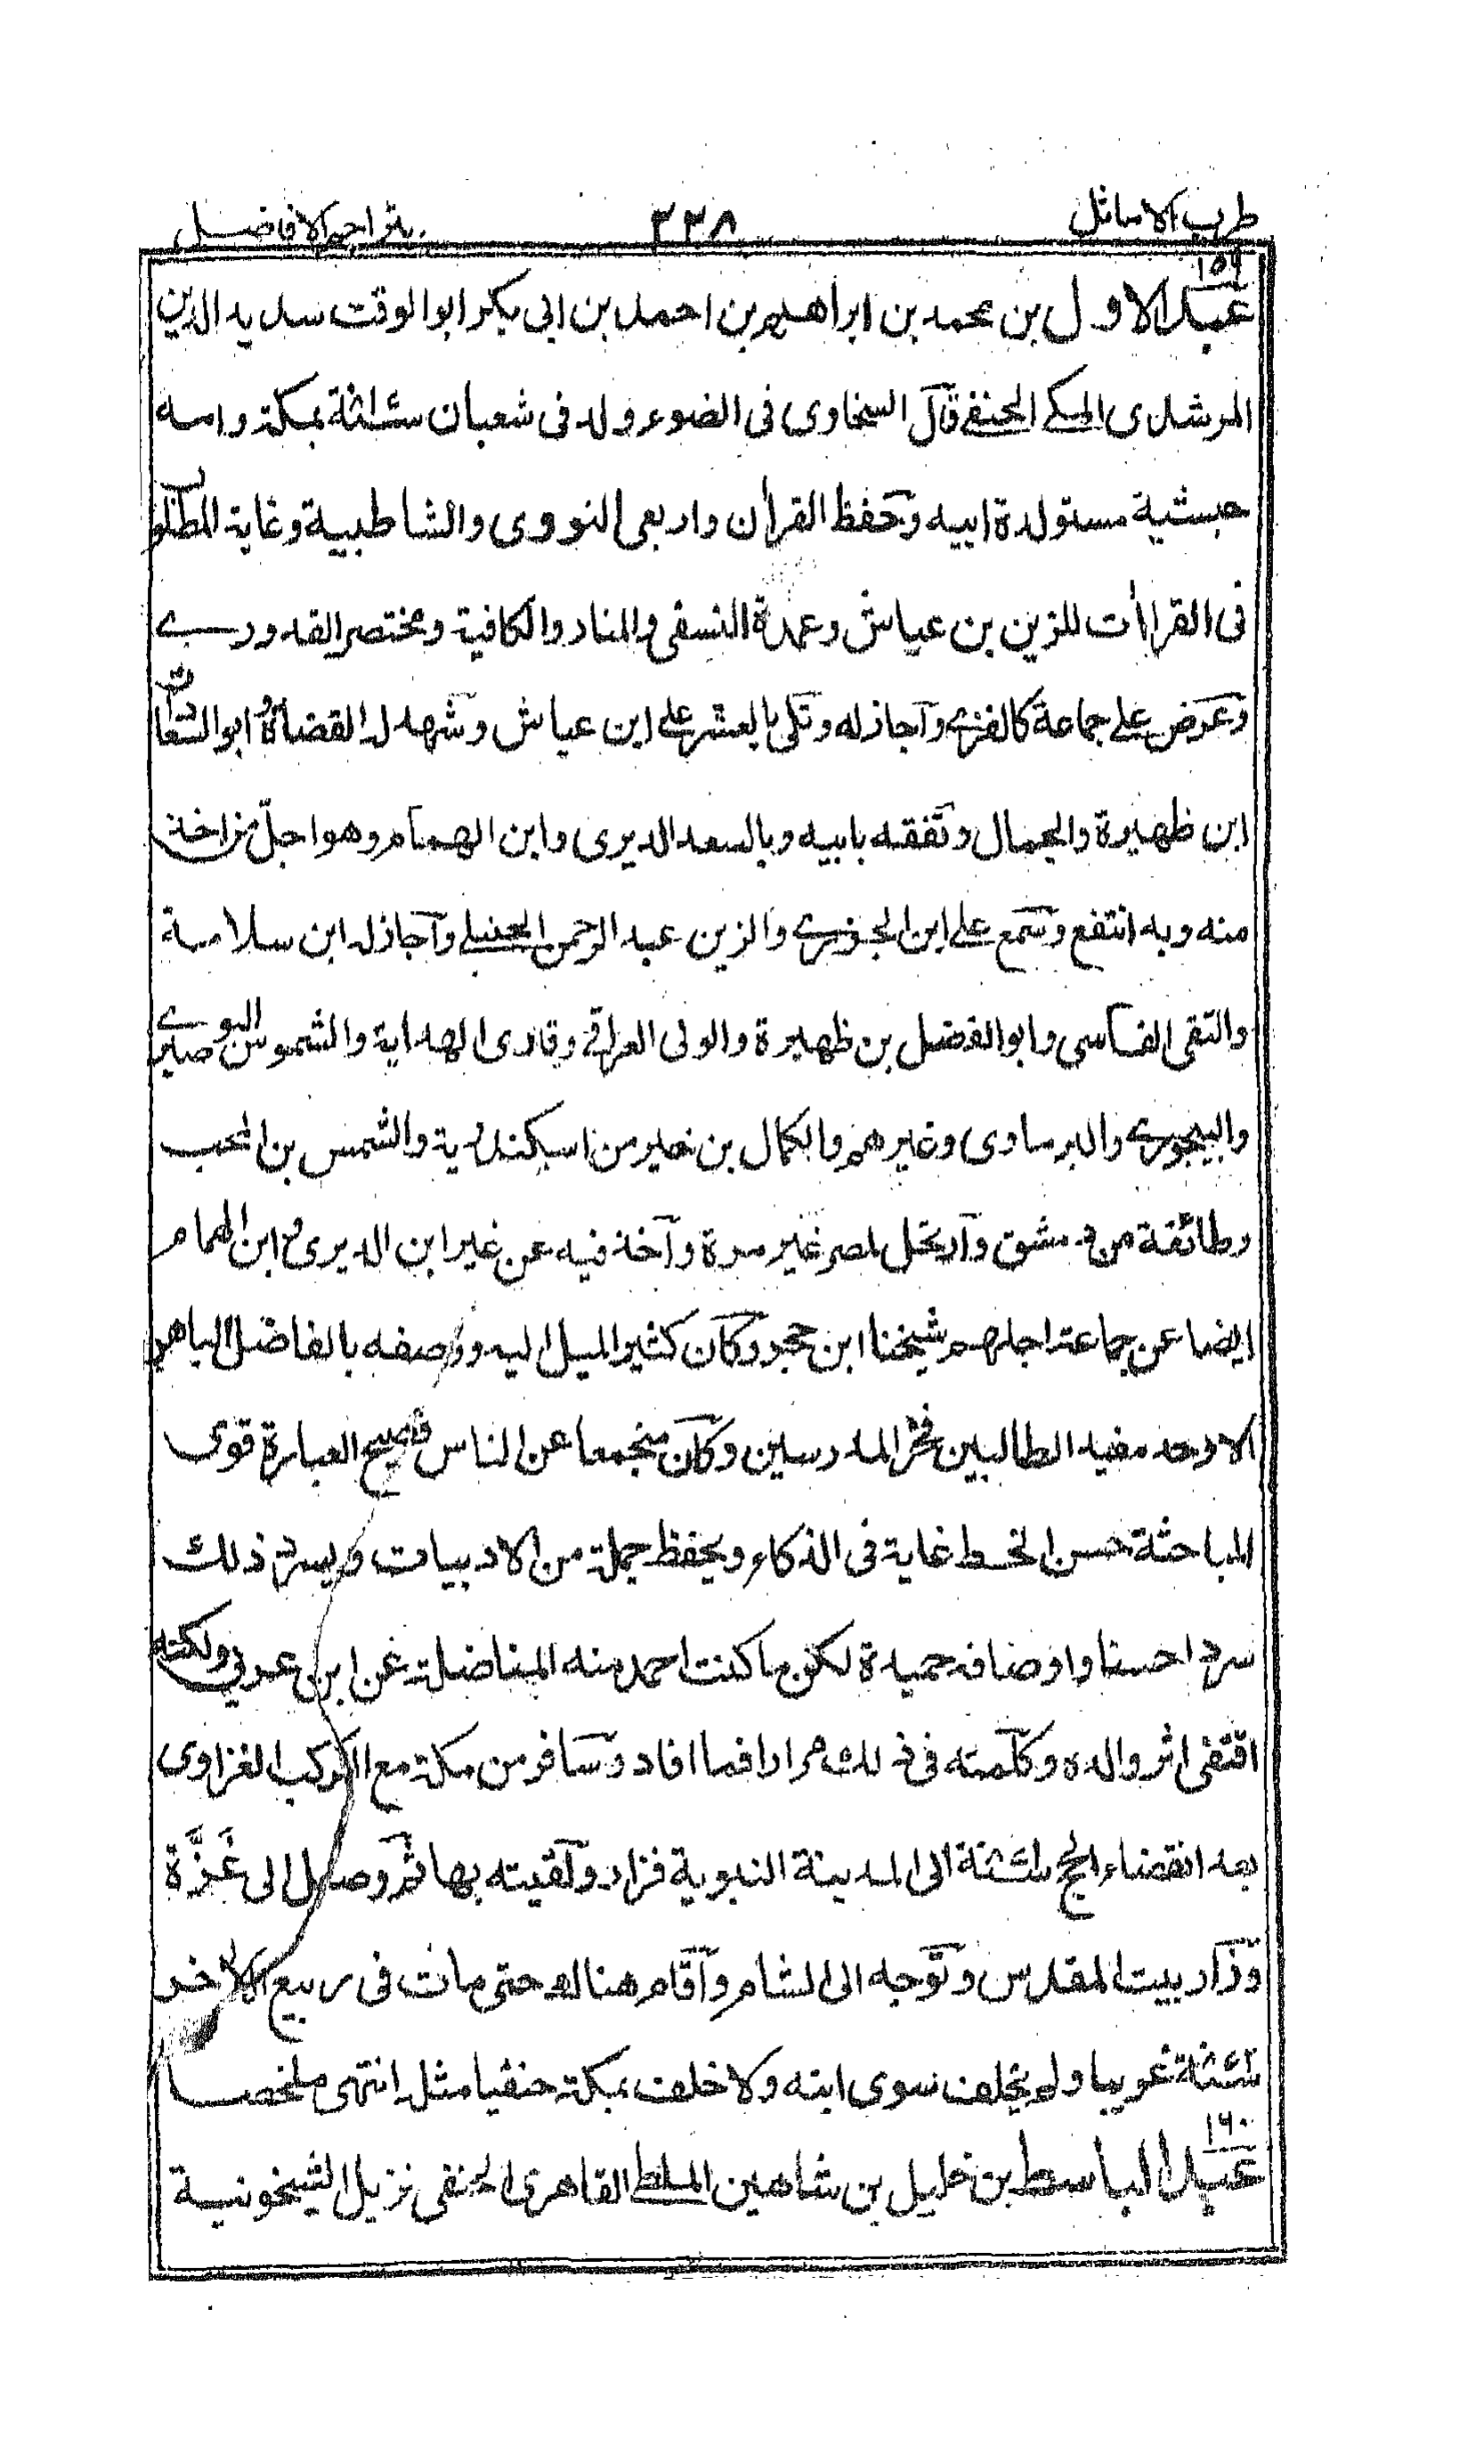 طرب الاماثل ٢٣٨ بتراجم الافاضل
١٥٩
عبد الاول بن محمد بن ابراهيم بن احمد بن ابى بكر ابو الوقت سديد الدين
المرشدى المكے الحنفے قال السخاوى فى الضوء ولد فى شعبان بمكة وامه
حبشية مستولدة ابيه وحفظ القرأن واربعى النووى والشاطبية وغاية المطلوب
فى القراأت للزين بن عياش وعمدة النسفى والمنار والكافية ومختصر القدورے
وعرض علے جماعة كالفنرے وآجاز له وتلى بالعشر علے ابن عياش وشهد له القضاة ابو السعادات
ابن ظهيرة والجمال وتفقه بابيه وبالسعد الديرى وابن الهمام وهو اجل من اخذ
منه وبه انتفع وسمع علے ابن الجزرے والزين عبد الرحمن الحنبلے وآجاز له ابن سلامة
والتقى الفاسى وابو الفضل بن ظهيرة والولى العراقے وقارى الهداية والشموس البوصيرے
والبيجورے والبرماوى وغيرهم والكمال بن خير من اسكندرية والشمس بن المحب
وطائفة من دمشق وآرتحل لمصر غير مرة وآخذ فيه عن غير ابن الديرى وابن الهمام
ايضا عن جماعة اجلهم شيخنا ابن حجر وكان كثير الميل اليه ووصفه بالفاضل الباهر
الاوحد مفيد الطالبين فخر المدرسين وكان منجمعا عن الناس فصيح العبارة قوى
المباحثة حسن الخط غاية فى الذكاء ويحفظ جملة من الادبيات ويسرد ذلك
سردا حسنا واوصافه حميدة لكن ما كنت احمد منه المناضلة عن ابن عربى ولكنه
اقتفى اثر والده وكلمته فى ذلك مرارا فما افاد وسافر من مكة مع الركب الغزاوى
بعد انقضاء الحج الى المدينة النبوية فزار ولقيته بها ثم وصل الى غَزَّة
وزار بيت المقدس وتوجه الى الشام وآقام هناك حتى مات فى ربيع الاخر
غريبا ولم يخلف سوى ابنه ولا خلف بمكة حنفيا مثله انتهى ملخصا
١٦٠
عبد الباسط بن خليل بن شاهين الملطے القاهرى الحنفى نزيل الشيخونية